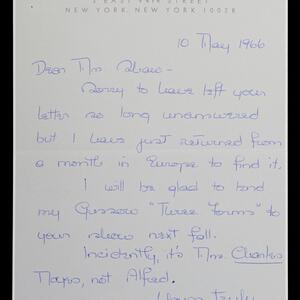 EAST 94TH STREET
NEW YORK, NEW YORK 10028
10 May 1966
Dear Mrs. Shaw -
Sorry to have left your
letter so long unanswered
but I have just returned from
a month in Europe to find it.
I will be glad to lend
my Gussow "Three Forms" to
your show next fall.
Incidently, it's Mrs. Charles
Mayer, not Alfred.
Yours truly